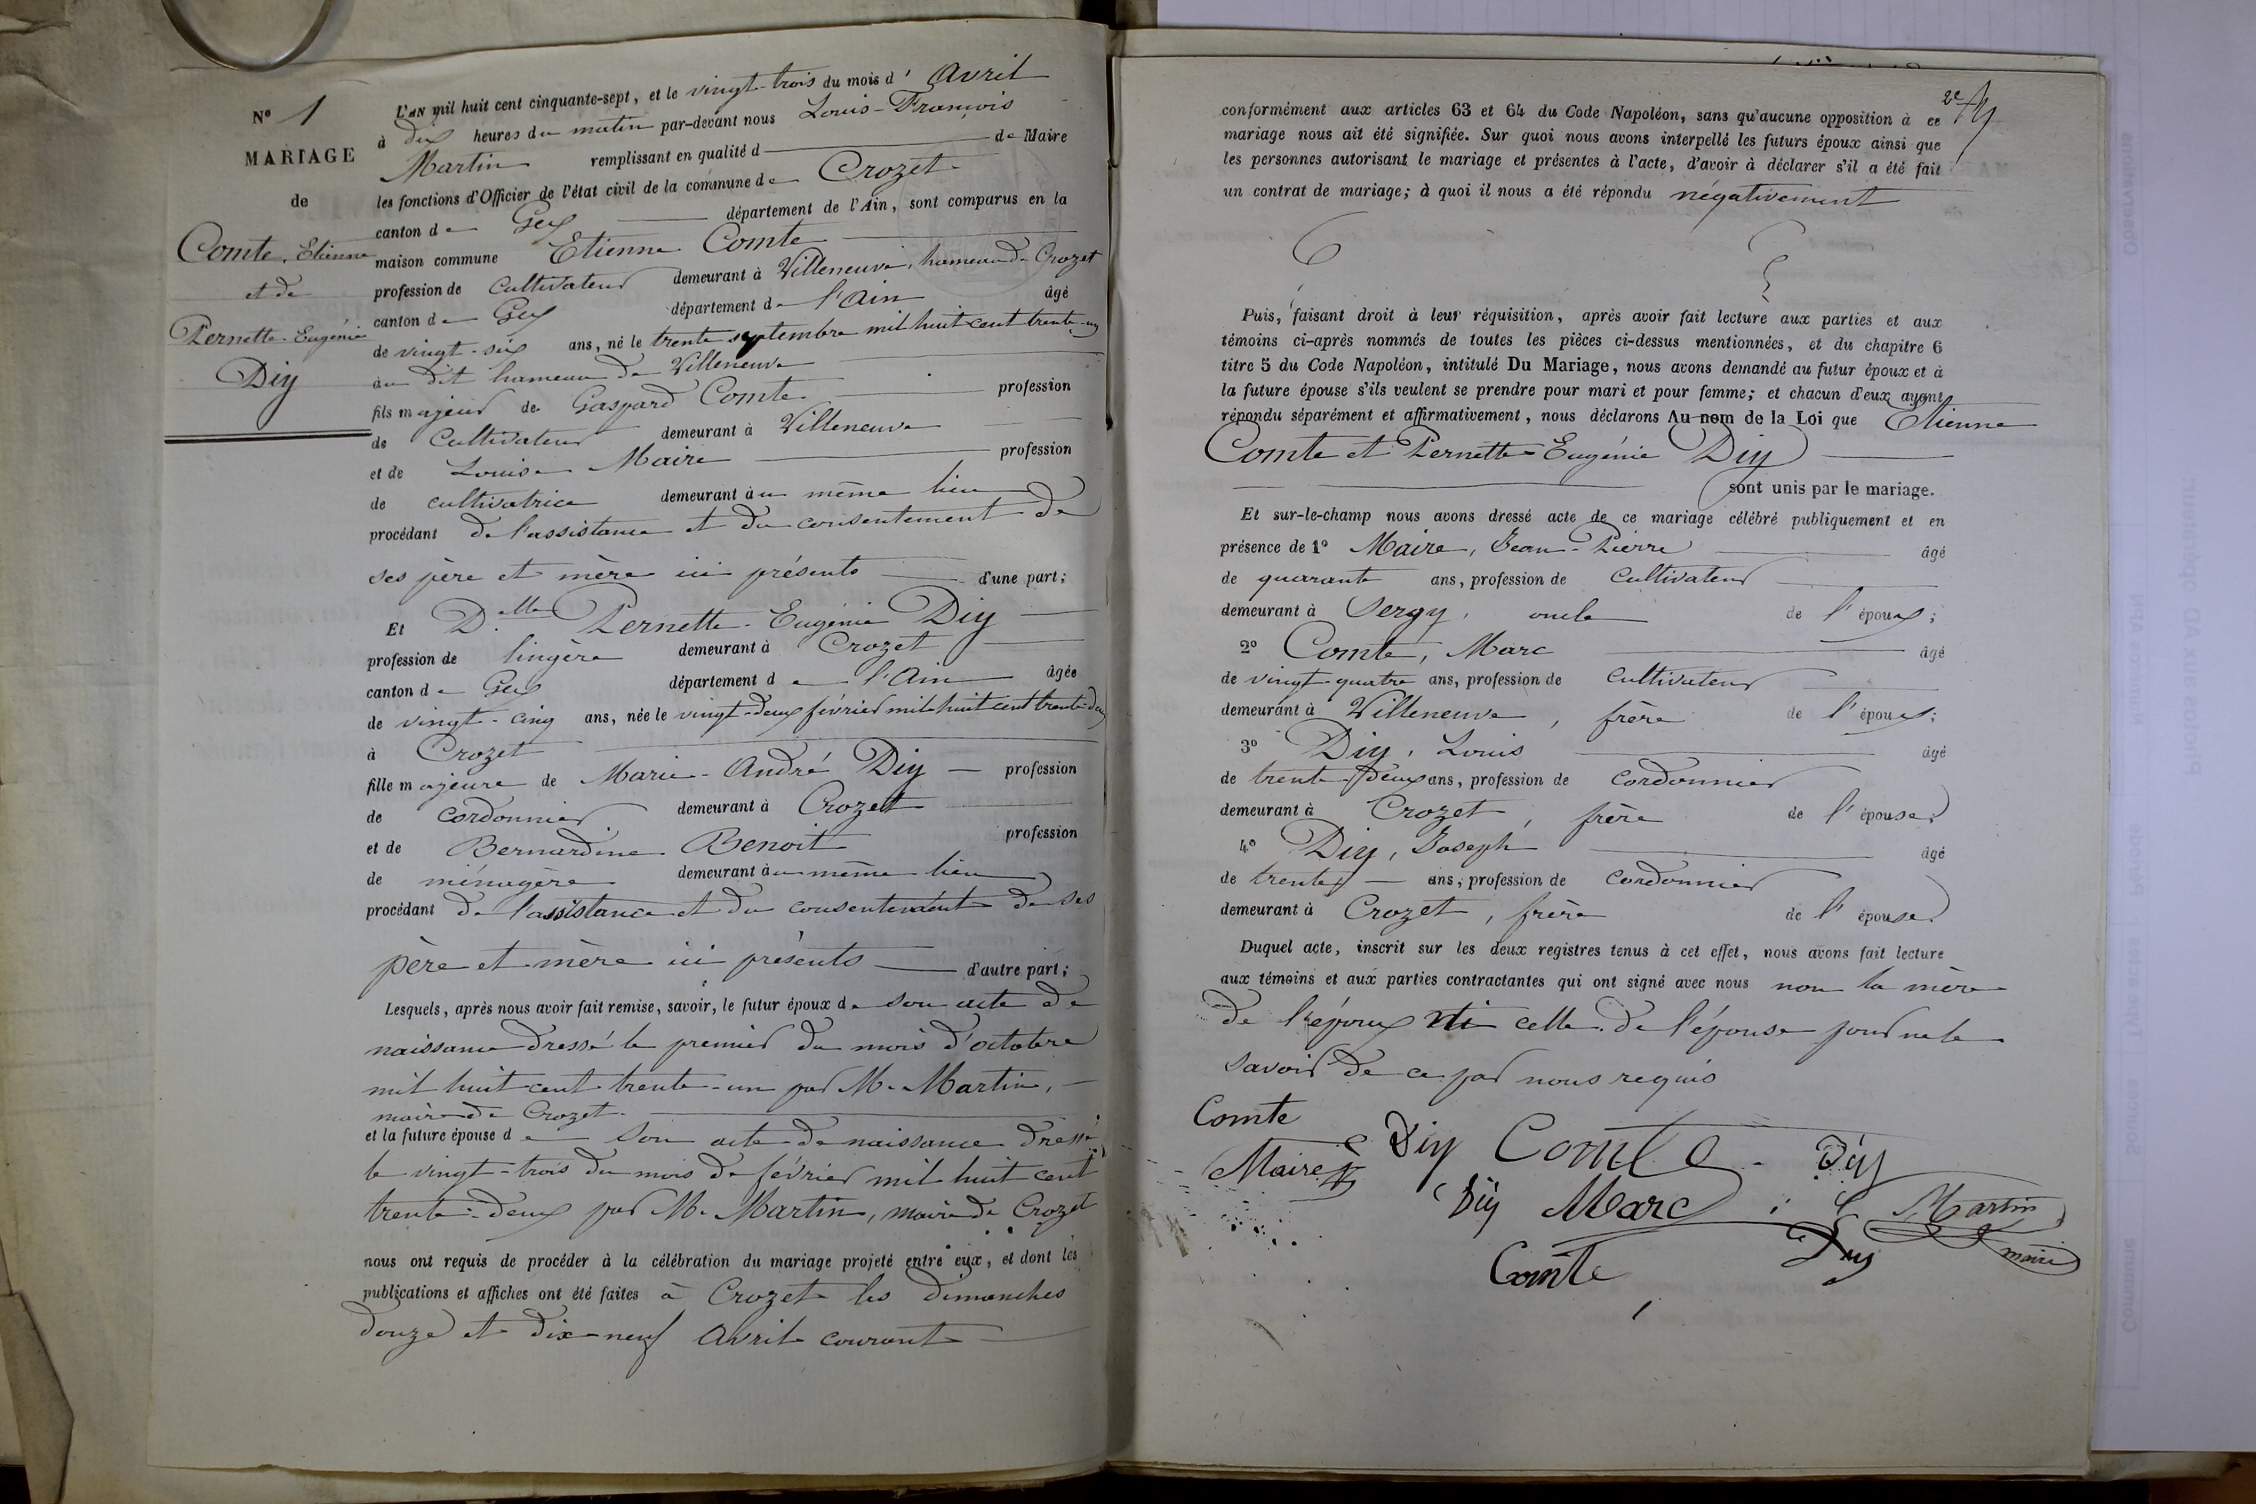 N° 1
MARIAGE
de
Comte, Etienne
et de
Pernette-Eugénie
Diy
L'AN mil huit cent cinquante-sept, et le vingt-trois du mois d'Avril
à dix heures du matin par-devant nous Louis-François
Martin remplissant en qualité d de Maire
les fonctions d'Officier de l'état civil de la commune de Crozet
canton de Gex département de l'Ain, sont comparus en la
maison commune Etienne Comte
profession de Cultivateur demeurant à Villeneuve, hameau de Crozet
canton de Gex département de l'Ain âgé
de vingt-six ans, né le trente septembre mil huit cent trente-un
au dit hameau de Villeneuve
fils majeur de Gaspard Comte profession
de Cultivateur demeurant à Villeneuve
et de Louise Maire profession
de cultivatrice demeurant au même lieu
procédant de l'assistance et du consentement de
ses père et mère ici présents d'une part;
Et D.elle Pernette-Eugénie Diy
profession de lingère demeurant à Crozet
canton de Gex département de l'Ain âgée
de vingt-cinq ans, née le vingt-deux février mil huit cent trente-deux
à Crozet
fille majeure de Marie-André Diy profession
de cordonnier demeurant à Crozet
et de Bernardine Benoit profession
de ménagère demeurant au même lieu
procédant de l'assistance et du consentement de ses
père et mère ici présents d'autre part;
Lesquels, après nous avoir fait remise, savoir, le futur époux de son acte de
naissance dressé le premier du mois d'octobre
mil huit cent trente-un par M. Martin,
maire de Crozet.
et la future épouse de son acte de naissance dressé
le vingt-trois du mois de février mil huit cent
trente-deux par M. Martin, maire de Crozet
nous ont requis de procéder à la célébration du mariage projeté entre eux, et dont les
publications et affiches ont été faites à Crozet les dimanches
douze et dix-neuf Avril courant
2e
conformément aux articles 63 et 64 du Code Napoléon, sans qu'aucune opposition à ce
mariage nous ait été signifiée. Sur quoi nous avons interpellé les futurs époux ainsi que
les personnes autorisant le mariage et présentes à l'acte, d'avoir à déclarer s'il a été fait
un contrat de mariage; à quoi il nous a été répondu négativement
Puis, faisant droit à leur réquisition, après avoir fait lecture aux parties et aux
témoins ci-après nommés de toutes les pièces ci-dessus mentionnées, et du chapitre 6
titre 5 du Code Napoléon, intitulé Du Mariage, nous avons demandé au futur époux et à
la future épouse s'ils veulent se prendre pour mari et pour femme; et chacun d'eux ayant
répondu séparément et affirmativement, nous déclarons Au nom de la Loi que Etienne
Comte et Pernette-Eugénie Diy
sont unis par le mariage.
Et sur-le-champ nous avons dressé acte de ce mariage célébré publiquement et en
présence de 1° Maire, Jean-Pierre âgé
de quarante ans, profession de Cultivateur
demeurant à Sergy, oncle de l'époux;
2° Comte, Marc âgé
de vingt-quatre ans, profession de Cultivateur
demeurant à Villeneuve, frère de l'époux;
3° Diy, Louis âgé
de trente-deux ans, profession de Cordonnier
demeurant à Crozet, frère de l'épouse
4° Diy, Joseph âgé
de trente ans, profession de Cordonnier
demeurant à Crozet, frère de l'épouse
Duquel acte, inscrit sur les deux registres tenus à cet effet, nous avons fait lecture
aux témoins et aux parties contractantes qui ont signé avec nous non la mère
de l'époux ni celle de l'épouse pour ne le
savoir de ce par nous requis
Comte
Maire Diy Comte Diy
Diy Marc Martin
maire
Comte Diy